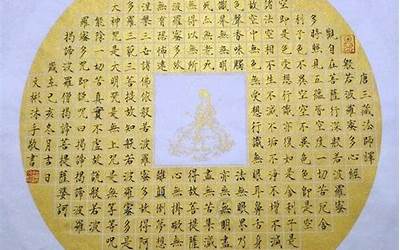 唐三藏法師譯
般若波羅蜜多心經
觀自在菩薩行深般若波羅蜜
多時照見五蘊皆空度一切苦厄舍
利子色不異空空不異色色即是空
空即是色受想行識亦復如是舍利子
是諸法空相不生不滅不垢不淨不增不減
是故空中無色無受想行識無眼耳鼻舌身
意無色聲香味觸
法無眼界乃
至無意識界無無
明亦無無明盡
亦無老死
盡無苦集
得故菩提薩
心無罣礙
顛倒夢想究竟
涅槃三世諸佛依般若波羅蜜多故得阿
耨多羅三藐三菩提故知般若波羅蜜多是
大神咒是大明咒是無上咒是無等等咒
能除一切苦真實不虛故說般若波
羅蜜多咒即說咒曰揭諦揭諦
波羅揭諦波羅僧揭諦菩提薩婆訶
己亥冬月吉日
沐手敬書